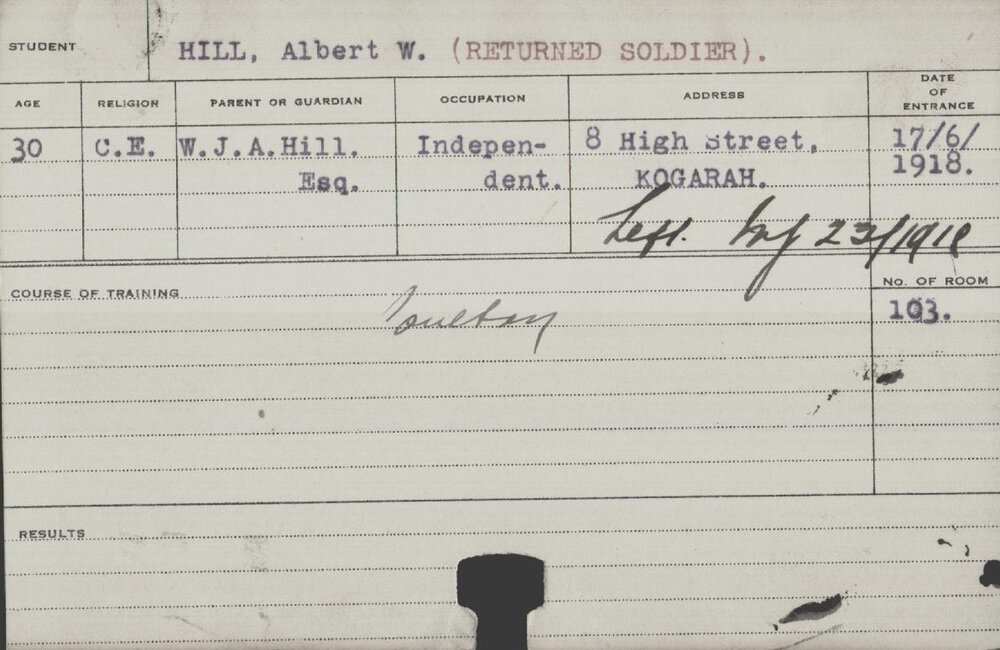 STUDENT HILL, Albert W. (RETURNED SOLDIER).
AGE RELIGION PARENT OR GUARDIAN OCCUPATION ADDRESS DATE OF ENTRANCE
30 C.E. W.J.A.Hill. Indepen- 8 High Street, 17/6/
Esq. dent. KOGARAH. 1918.
Left. 23/1918
COURSE OF TRAINING No. OF ROOM
103.
RESULTS